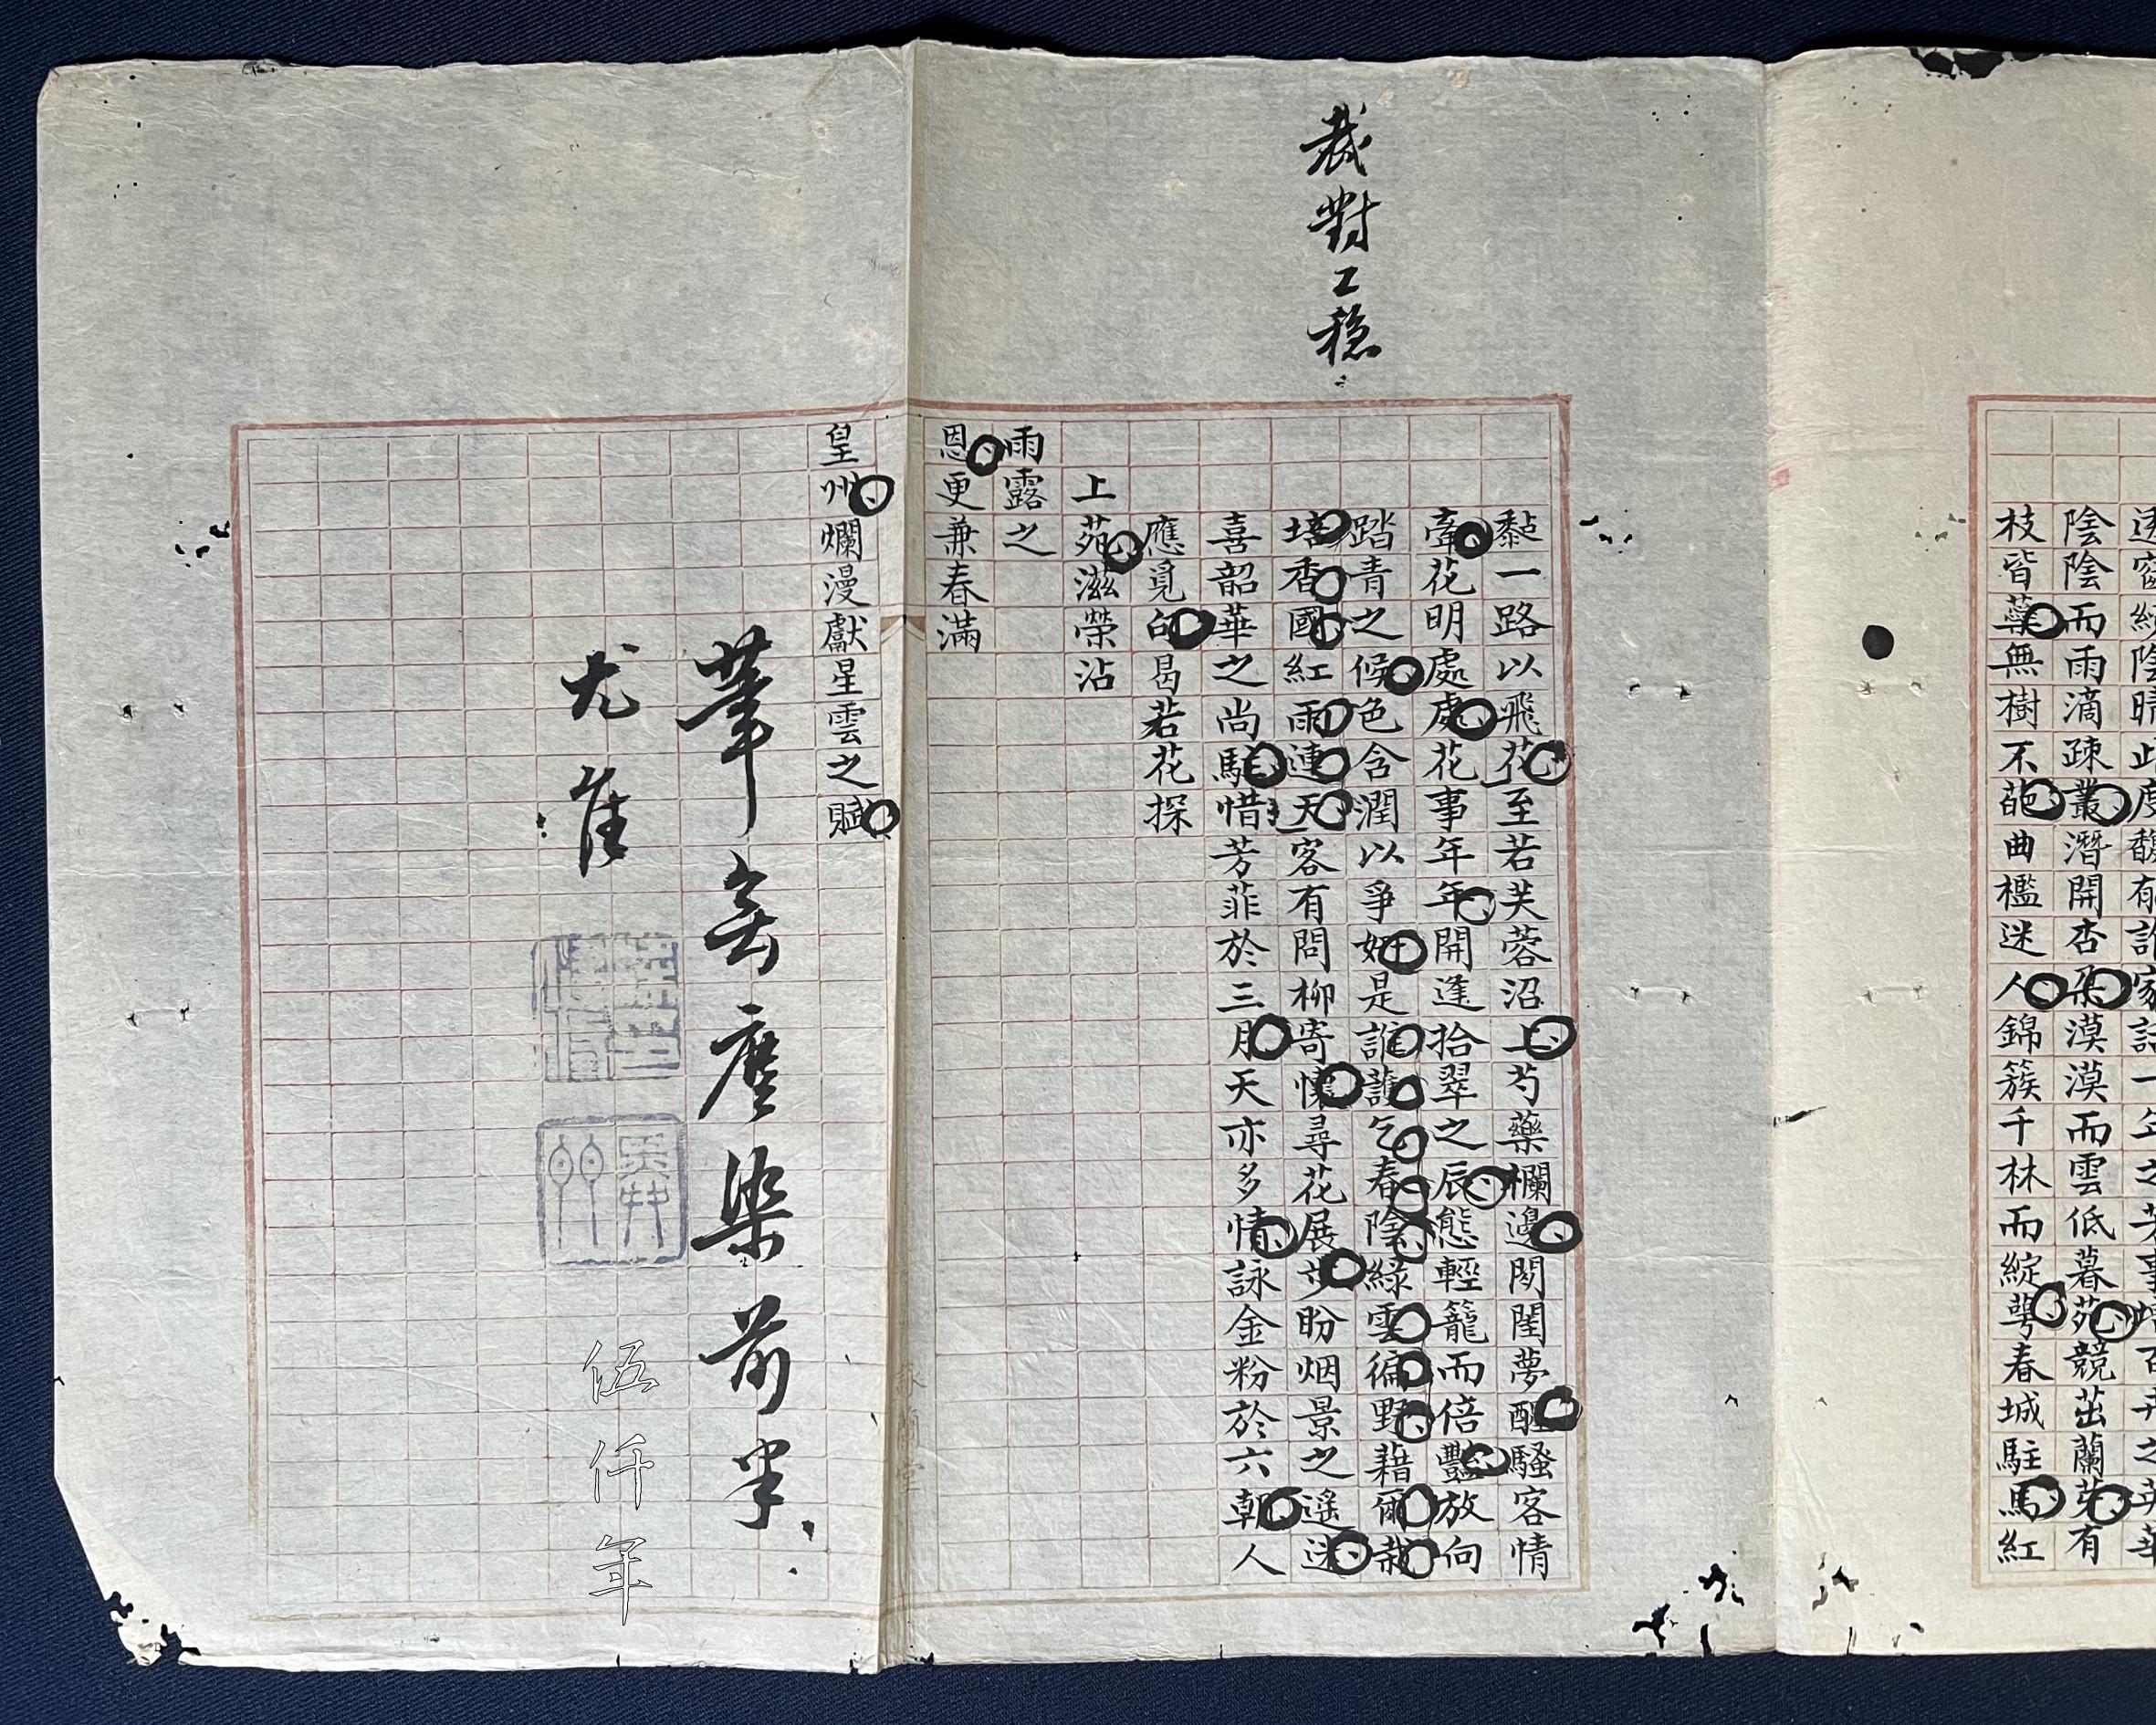 陰陰而雨滴疎叢潛開杏朵漠漠而雲低暮苑競茁蘭芽有
枝皆蘂無樹不葩曲檻迷人錦簇千林而綻萼春城駐馬紅
裁對工穩
黏一路以飛花至若芙蓉沼上芍藥欄邊閨夢醒騷客情
牽花明處處花事年年開逢拾翠之辰態輕籠而倍豔放向
踏青之候色含潤以爭妍是誰護乞春陰綠雲徧野藉爾栽
培香國紅雨連天客有問柳寄懷尋花展步盼烟景之遥迷
喜韶華之尚駐惜芳菲於三月天亦多情詠金粉於六朝人
應覓句曷若花探
上苑滋榮沾
雨露之
恩更兼春滿
皇州爛漫獻星雲之賦
筆無塵染前半
尤佳
伍仟年